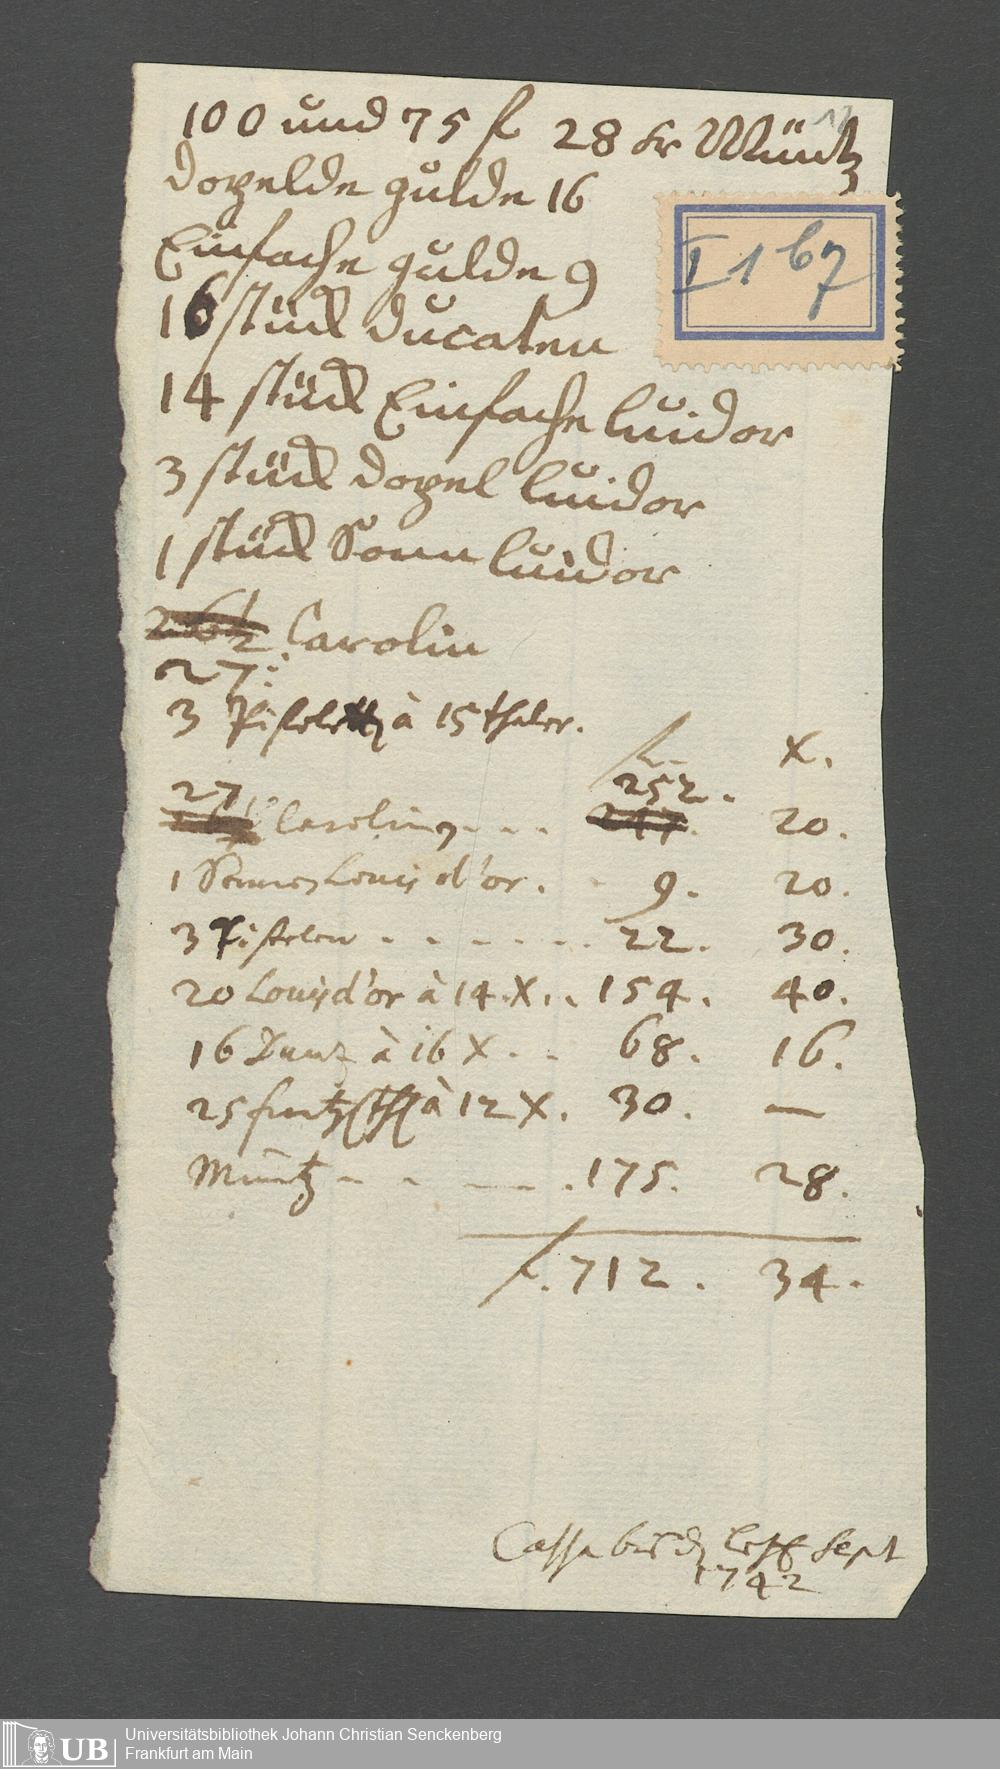 100 und 75 f 28 Kr Müntz
dopelde gulde 16
Einfache gulde 9
16 stück ducaten
14 stück Einfache luidor
3 stück dopel luidor
1 stück Sonn luidor
26½ Carolin
27:
3 Pistolen à 15 thaler.
f. X.
27 252.
Carolins - - - 247. 20.
1 Sonnen Louis d'or . . 9. 20.
3 Pistolen . . - - - . . 22. 30.
20 Louisd'or à 14 X . . 154. 40.
16 Ducat à 16 X . . 68. 16.
25 à 12 X. 30. —
Müntz - - — - . 175. 28.
f. 712. 34.
Cassa Sept
1742
I 167
UB
Universitätsbibliothek Johann Christian Senckenberg
Frankfurt am Main